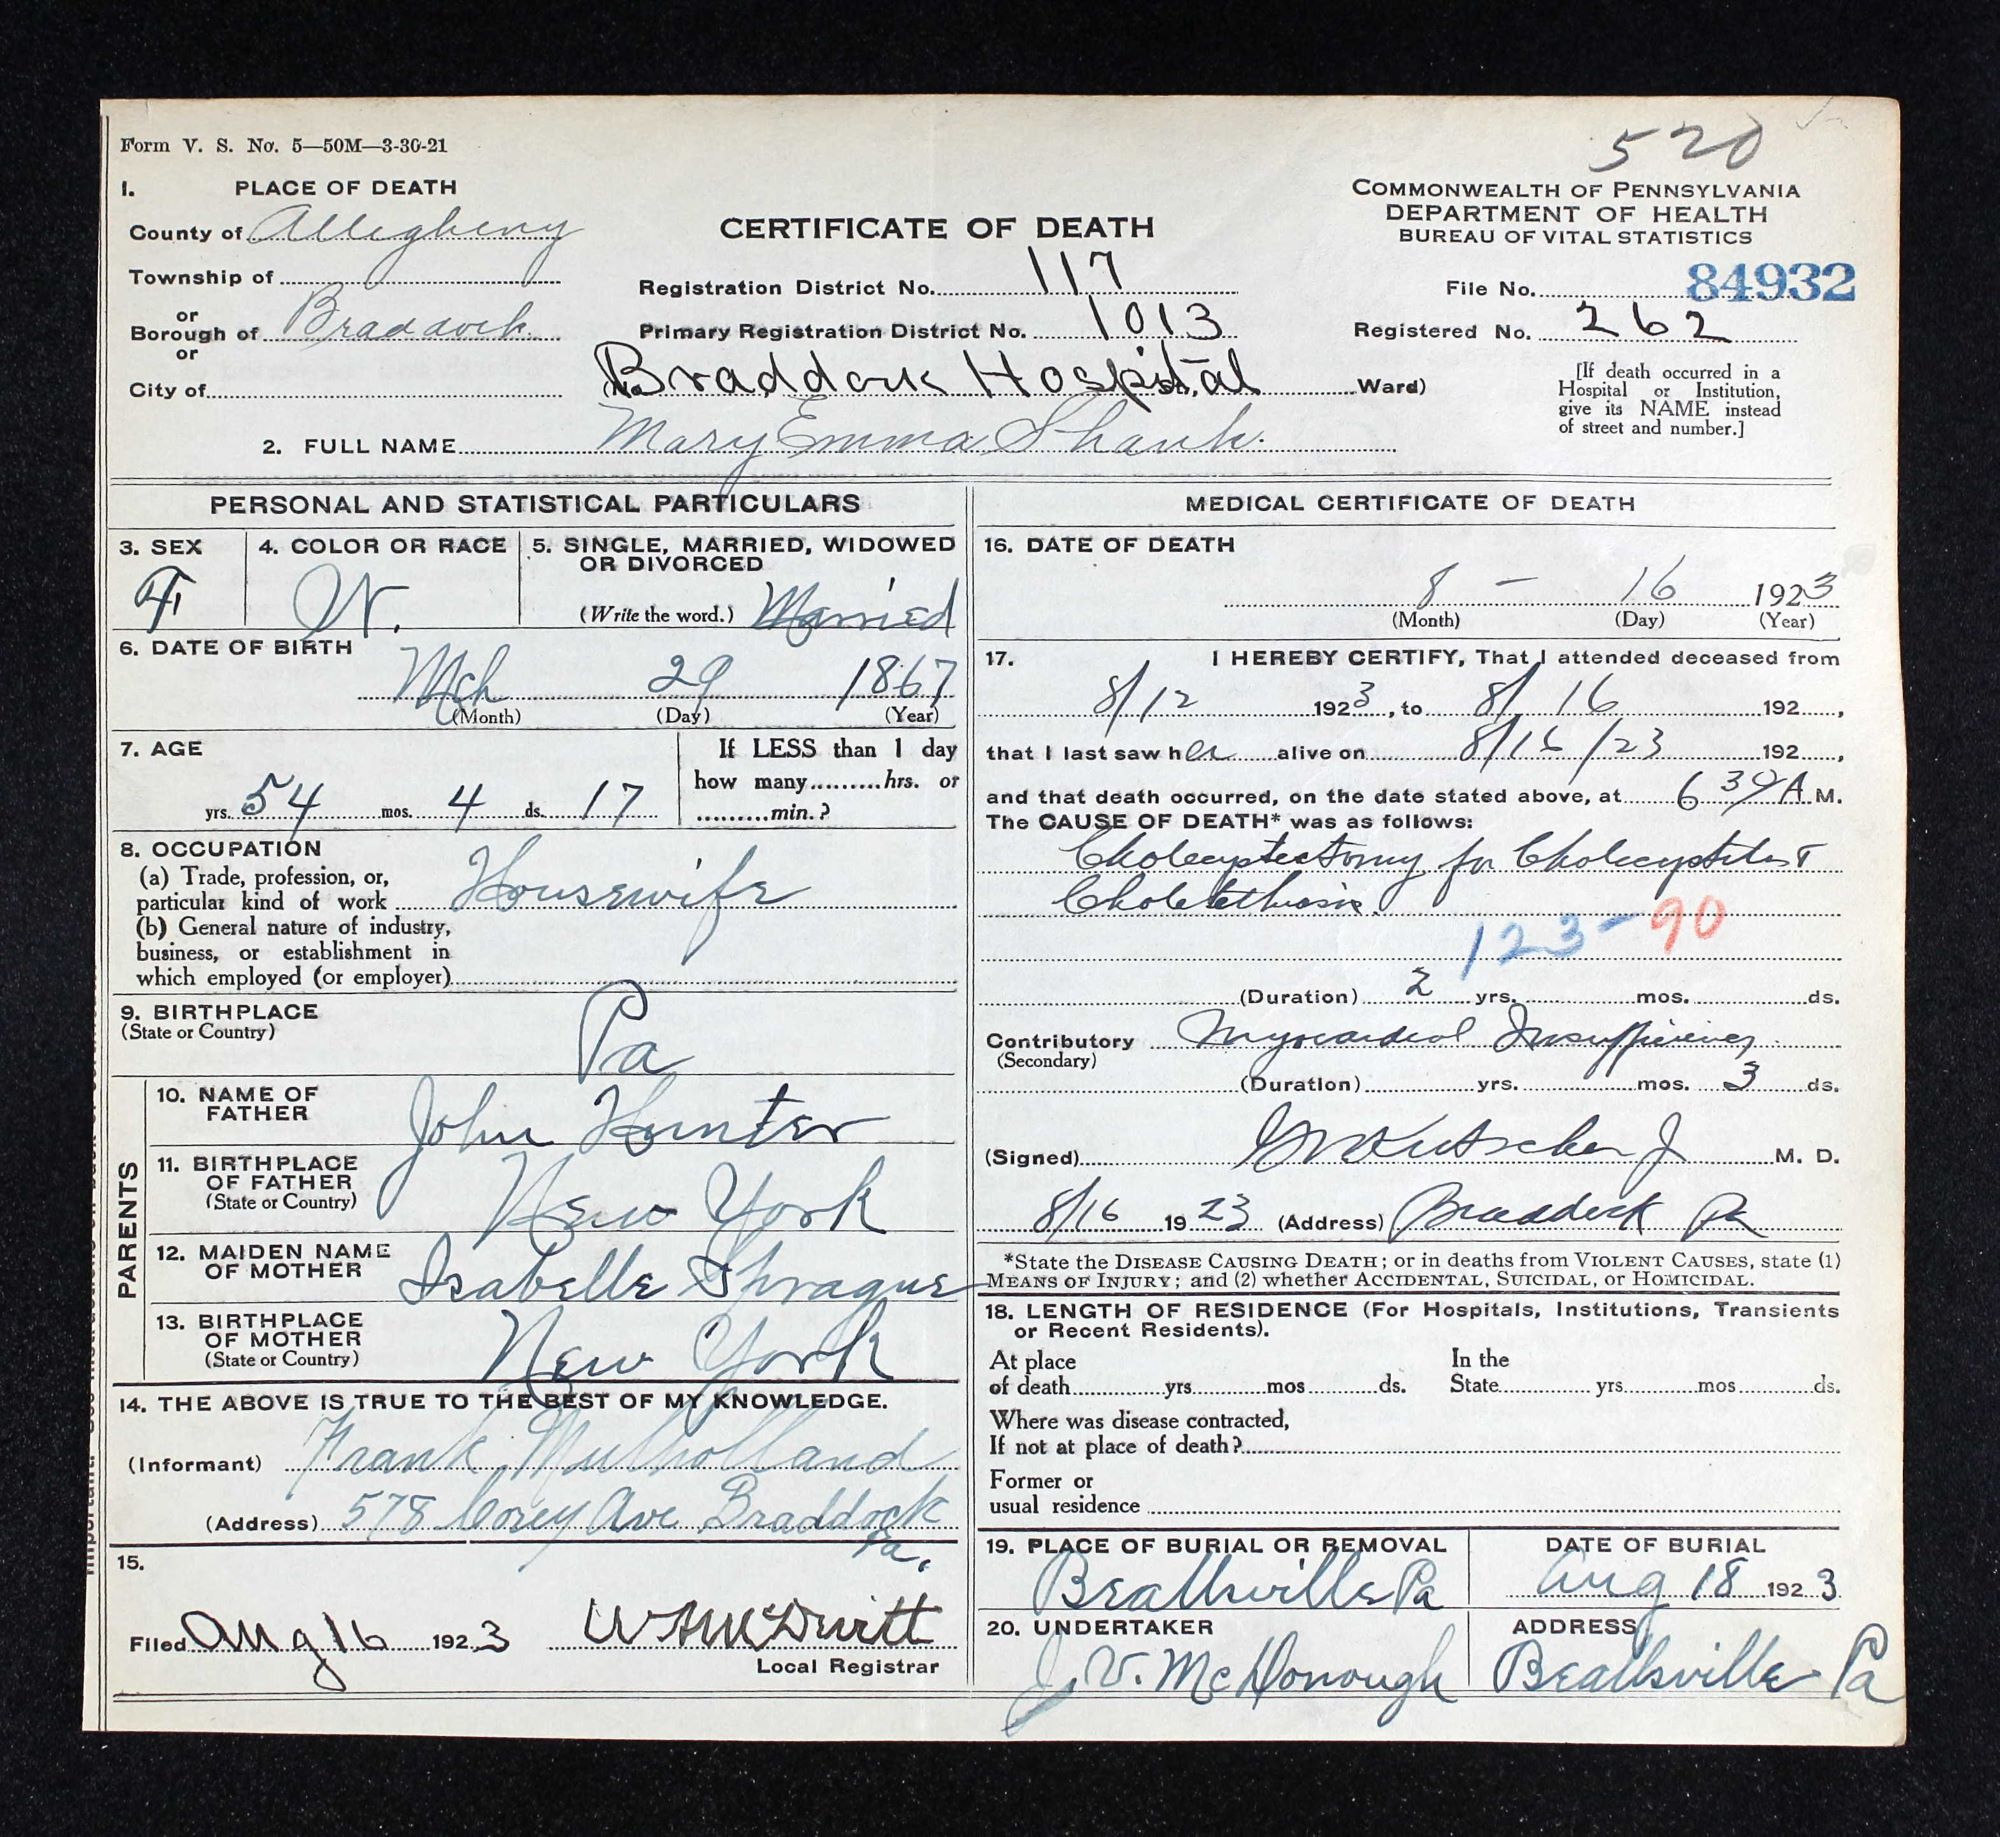 520
Form V. S. No. 5—50M—3-30-21
1. PLACE OF DEATH
County of Allegheny
Township of
or
Borough of Braddock.
or
City of
CERTIFICATE OF DEATH
Registration District No. 117
Primary Registration District No. 1013
(No. Braddock Hospital St., Ward)
COMMONWEALTH OF PENNSYLVANIA
DEPARTMENT OF HEALTH
BUREAU OF VITAL STATISTICS
File No. 84932
Registered No. 262
[If death occurred in a
Hospital or Institution,
give its NAME instead
of street and number.]
2. FULL NAME Mary Emma Shank.
PERSONAL AND STATISTICAL PARTICULARS
3. SEX
F
4. COLOR OR RACE
W.
5. SINGLE, MARRIED, WIDOWED
OR DIVORCED
(Write the word.) Married
6. DATE OF BIRTH
Mch 29 1867
(Month) (Day) (Year)
7. AGE
yrs. 54 mos. 4 ds. 17
If LESS than 1 day
how many hrs. or
min.?
8. OCCUPATION
(a) Trade, profession, or,
particular kind of work Housewife
(b) General nature of industry,
business, or establishment in
which employed (or employer)
9. BIRTHPLACE
(State or Country)
Pa
PARENTS
10. NAME OF
FATHER
John Hunter
11. BIRTHPLACE
OF FATHER
(State or Country)
New York
12. MAIDEN NAME
OF MOTHER
Isabelle Sprague
13. BIRTHPLACE
OF MOTHER
(State or Country)
New York
14. THE ABOVE IS TRUE TO THE BEST OF MY KNOWLEDGE.
(Informant) Frank Mulholland
(Address) 578 Corey Ave Braddock
Pa.
15.
Filed Aug 16 1923 W A McDevitt
Local Registrar
MEDICAL CERTIFICATE OF DEATH
16. DATE OF DEATH
8 – 16 1923
(Month) (Day) (Year)
17. I HEREBY CERTIFY, That I attended deceased from
8/12 1923, to 8/16 192 ,
that I last saw her alive on 8/16/23 192 ,
and that death occurred, on the date stated above, at 6 30 A M.
The CAUSE OF DEATH* was as follows:
Cholecystectomy for Cholecystitis &
Cholelithiasis.
123-90
(Duration) 2 yrs. mos. ds.
Contributory Myocardial Insufficiency
(Secondary)
(Duration) yrs. mos. 3 ds.
(Signed) Kutscher M. D.
8/16 1923 (Address) Braddock Pa
*State the DISEASE CAUSING DEATH; or in deaths from VIOLENT CAUSES, state (1)
MEANS OF INJURY; and (2) whether ACCIDENTAL, SUICIDAL, or HOMICIDAL.
18. LENGTH OF RESIDENCE (For Hospitals, Institutions, Transients
or Recent Residents).
At place
of death yrs mos ds.
In the
State yrs mos ds.
Where was disease contracted,
If not at place of death?
Former or
usual residence
19. PLACE OF BURIAL OR REMOVAL
Beallsville Pa
DATE OF BURIAL
Aug 18 1923
20. UNDERTAKER
J. V. McDonough
ADDRESS
Beallsville Pa